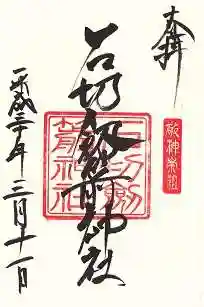 奉拝
敬神崇祖
石切劔箭神社
石切劔
箭神社
平成三十年三月十一日